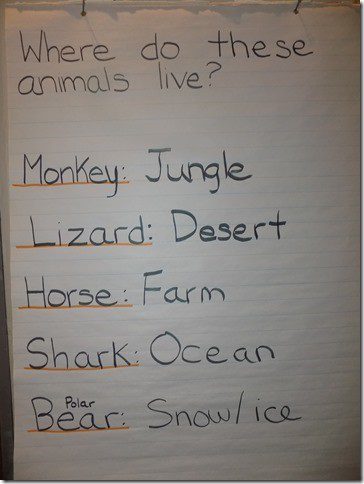 Where do these
animals live?
Monkey: Jungle
Lizard: Desert
Horse: Farm
Shark: Ocean
Polar
Bear: Snow/ice